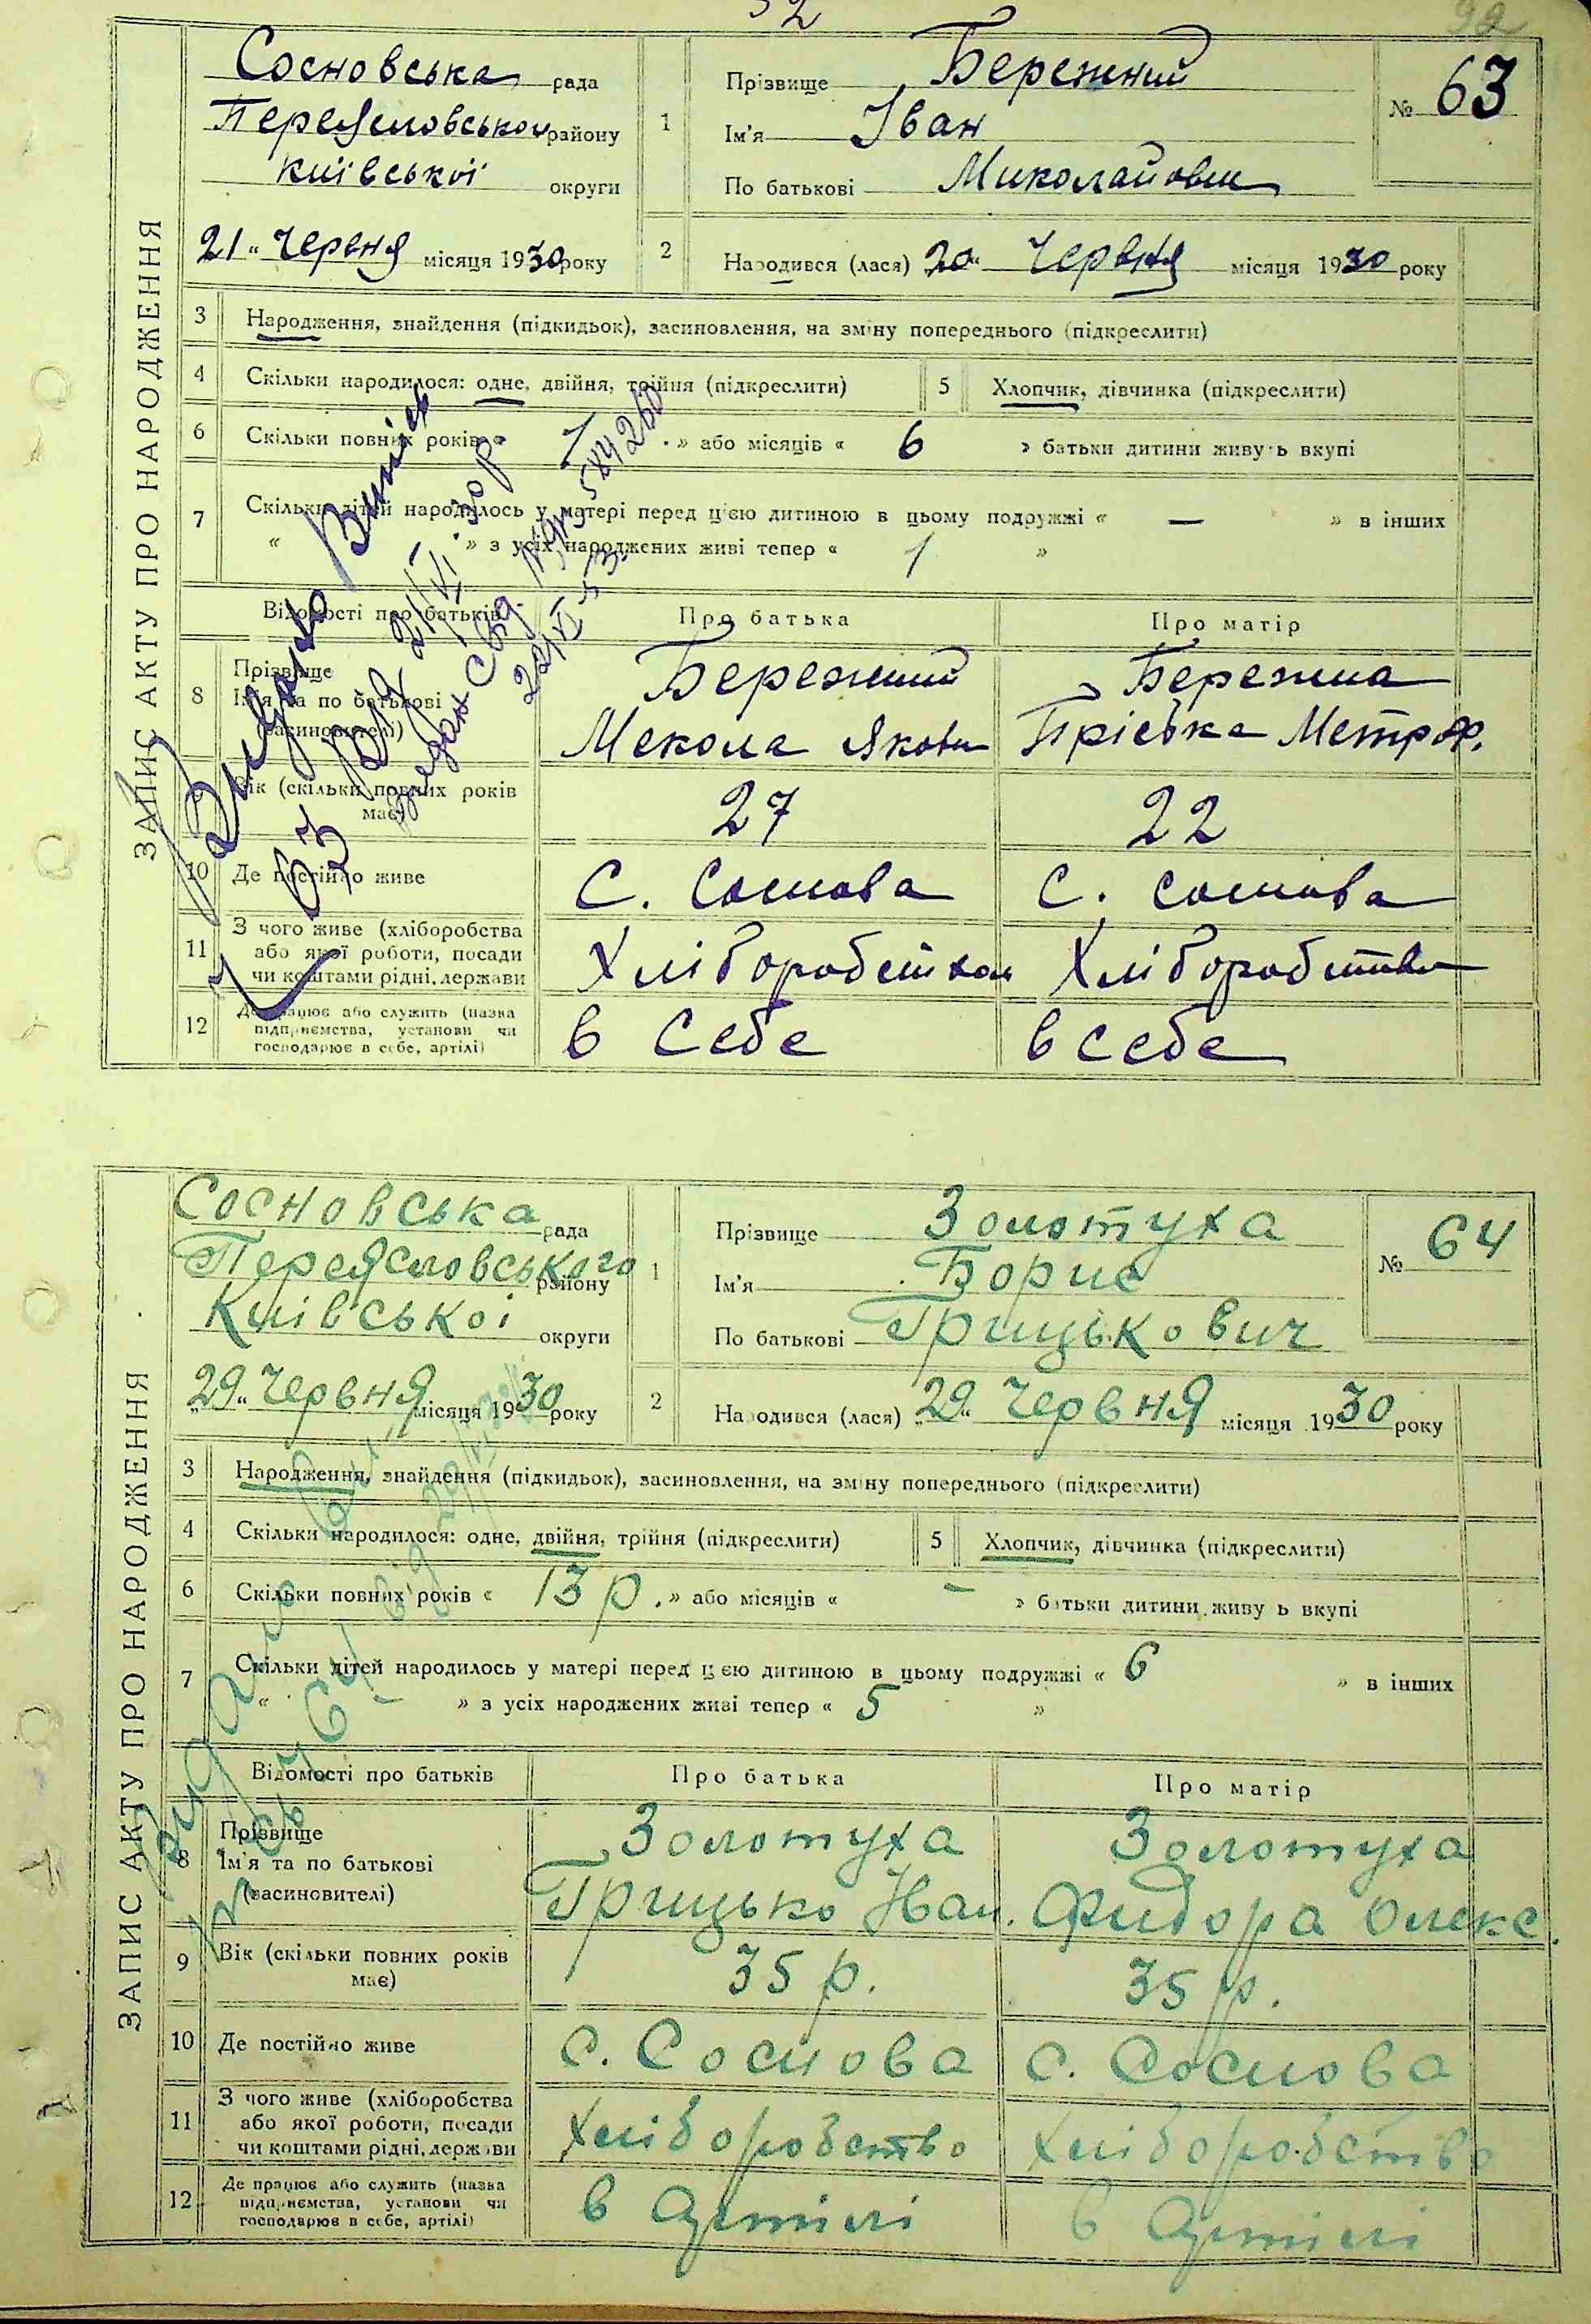 32
92
ЗАПИС АКТУ ПРО НАРОДЖЕННЯ
Сосновська рада
Переяславськом району
Київської округи
21 „ червня місяця 1930 року
1
Прізвище Бережний
Ім'я Іван
По батькові Миколайович
№ 63
2
Народився (лася) 20 „ Червня місяця 1930 року
3 Народження, знайдення (підкидьок), засиновлення, на зміну попереднього (підкреслити)
4 Скільки народилося: одне, двійня, трійня (підкреслити)
5 Хлопчик, дівчинка (підкреслити)
6 Скільки повних років « 1 » або місяців « 6 » батьки дитини живуть вкупі
7 Скільки дітей народилось у матері перед цією дитиною в цьому подружжі « — » в інших
« » з усіх народжених живі тепер « 1 »
Відомості про батьків Про батька Про матір
8 Прізвище
Ім'я та по батькові
(засиновителі)
Бережний
Мекола Якови
Бережна
Пріська Метроф.
9 Вік (скільки повних років має) 27 22
10 Де постійно живе С. Соснова С. Соснова
11 З чого живе (хліборобства
або якої роботи, посади
чи коштами рідні, держави
Хліборобство Хліборобство
12 Де працює або служить (назва
підприємства, установи чи
господарює в себе, артілі)
в себе в себе
Видано Витяг
63 від 21/VI 30 р
ЗАПИС АКТУ ПРО НАРОДЖЕННЯ
Сосновська рада
Переяславського району
Київської округи
„29 „ Червня місяця 1930 року
1
Прізвище Золотуха
Ім'я Борис
По батькові Грицькович
№ 64
2
Народився (лася) „29 „ Червня місяця 1930 року
3 Народження, знайдення (підкидьок), засиновлення, на зміну попереднього (підкреслити)
4 Скільки народилося: одне, двійня, трійня (підкреслити)
5 Хлопчик, дівчинка (підкреслити)
6 Скільки повних років « 13 р. » або місяців « – » батьки дитини живуть вкупі
7 Скільки дітей народилось у матері перед цією дитиною в цьому подружжі « 6 » в інших
« – » з усіх народжених живі тепер « 5 »
Відомості про батьків Про батька Про матір
8 Прізвище
Ім'я та по батькові
(засиновителі)
Золотуха
Грицько Iван.
Золотуха
Фидора Олекс.
9 Вік (скільки повних років має) 35 р. 35 р.
10 Де постійно живе с. Соснова с. Соснова
11 З чого живе (хліборобства
або якої роботи, посади
чи коштами рідні, держави
хліборобство хліборобство
12 Де працює або служить (назва
підприємства, установи чи
господарює в себе, артілі)
в Артілі в Артілі